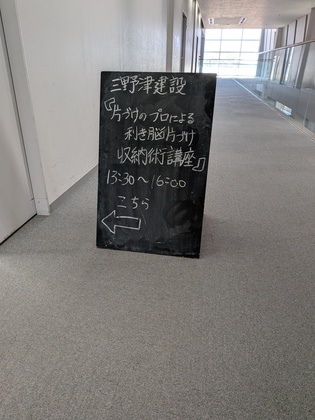 三野津建設
『片づけのプロによる
利き脳片づけ
収納術講座』
13:30〜16:00
こちら